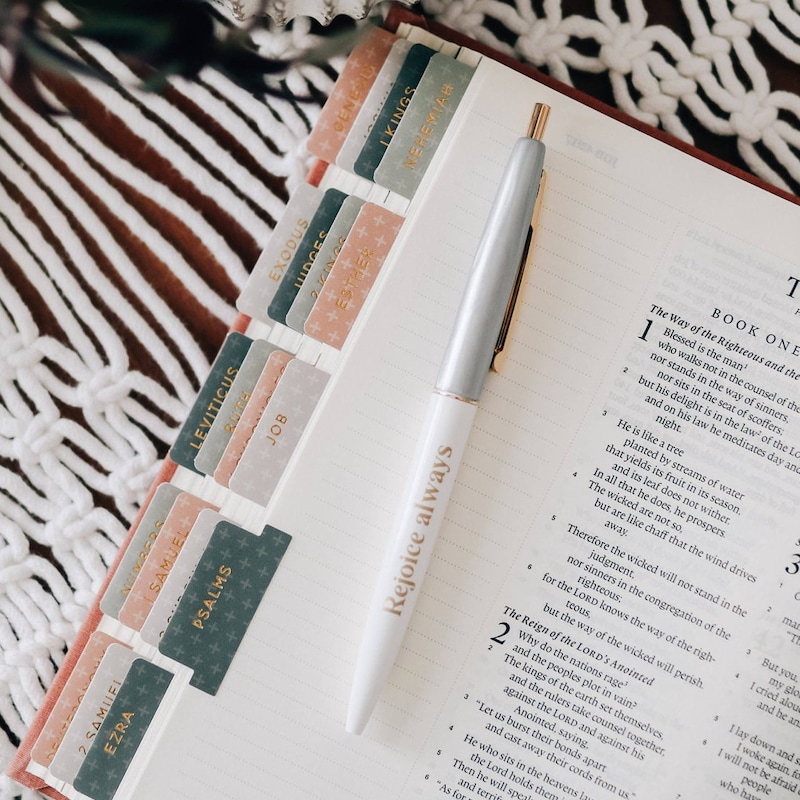 GENESIS
1 KINGS
NEHEMIAH
EXODUS
JUDGES
2 KINGS
ESTHER
LEVITICUS
RUTH
JOB
NUMBERS
1 SAMUEL
PSALMS
2 SAMUEL
EZRA
Rejoice always
BOOK ONE
The Way of the Righteous and the
1 Blessed is the man¹
who walks not in the counsel of the
nor stands in the way of sinners,
nor sits in the seat of scoffers;
2 but his delight is in the law² of the
and on his law he meditates day and
night.
3 He is like a tree
planted by streams of water
that yields its fruit in its season,
and its leaf does not wither.
In all that he does, he prospers.
4 The wicked are not so,
but are like chaff that the wind drives
away.
5 Therefore the wicked will not stand in the
judgment,
nor sinners in the congregation of the
righteous;
6 for the LORD knows the way of the righ-
teous,
but the way of the wicked will perish.
The Reign of the LORD's Anointed
2 Why do the nations rage³
and the peoples plot in vain?
2 The kings of the earth set themselves,
and the rulers take counsel together,
against the LORD and against his
Anointed, saying,
3 "Let us burst their bonds apart
and cast away their cords from us."
4 He who sits in the heavens
the Lord holds them
5 Then he will
and
6 "As for
3
But you,
my
4 I cried
and he
5 I lay down and
I woke again,
6 I will not be afraid
people
who have